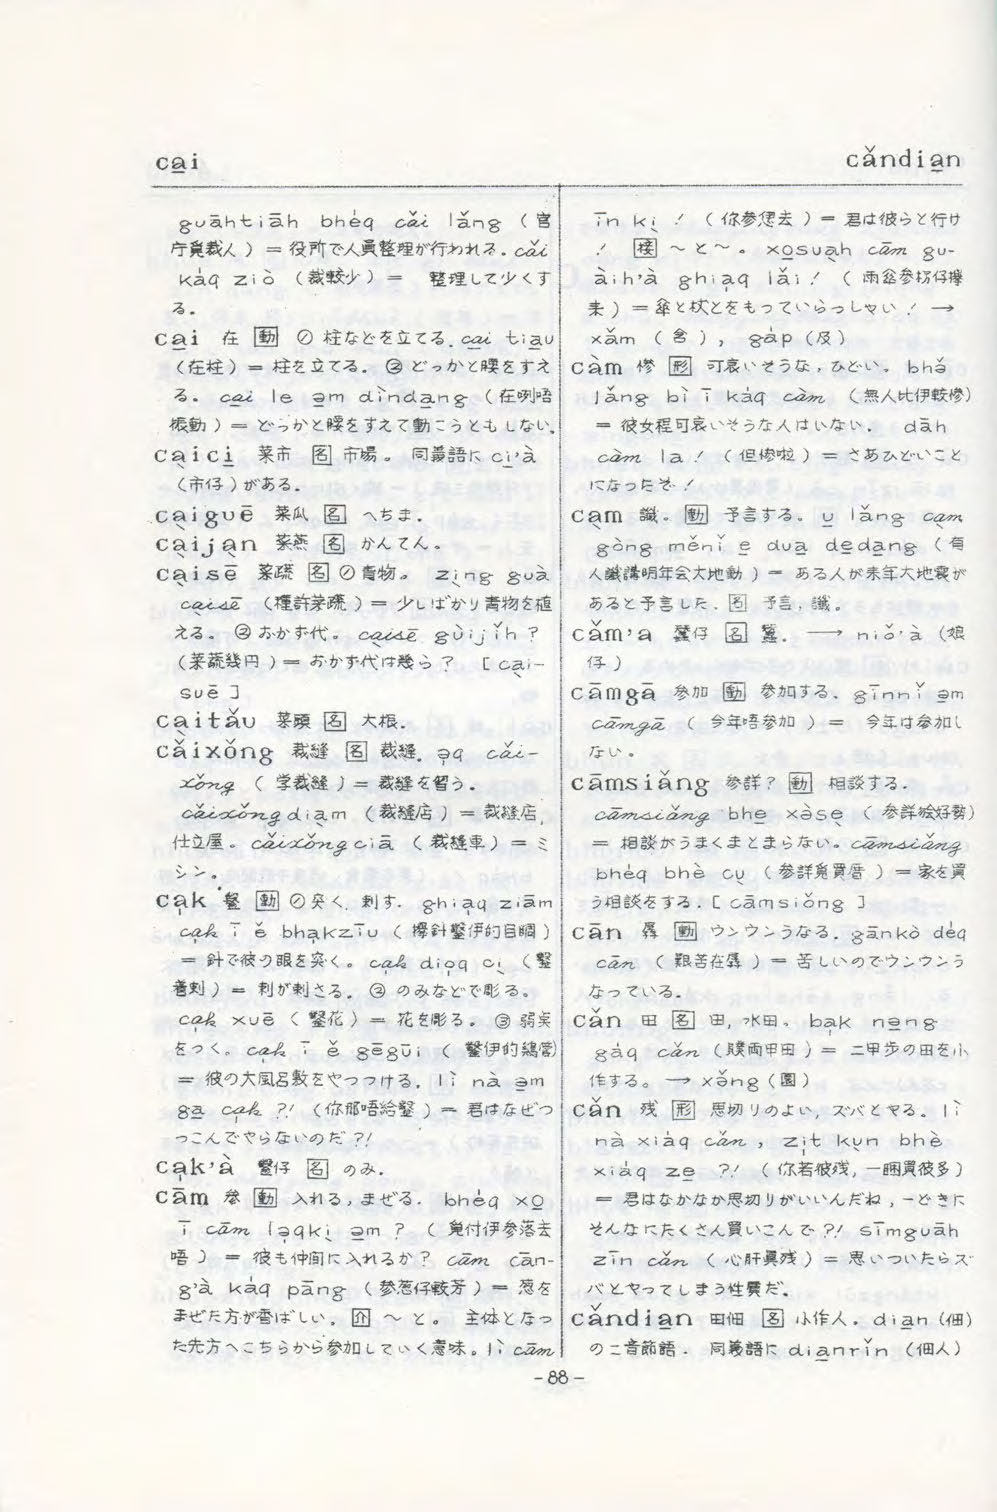 ca̱i
cǎndia̱n
guāhtiāh bhe̍q cǎi lǎng (官
庁覓裁人) = 役所で人員整理が行われる. cǎi
ka̍q ziò (裁較少) = 整理して少くす
る。
ca̱i 在 [動] ① 柱などを立てる. ca̱i tia̱u
(在柱) = 柱を立てる。 ② どっかと腰をすえ
る。 ca̱i le ə̱m dìnda̱ng (在咧唔
振動) = どっかと腰をすえて動こうともしない.
ca̖ici̱ 菜市 [名] 市場。 同義語に ci̱'à
(市仔) がある.
ca̖iguē 菜瓜 [名] へちま.
ca̖ija̖n 菜燕 [名] かんてん。
ca̖isē 菜蔬 [名] ① 青物。 zi̖ng guà
ca̖isē (種許菜蔬) = 少しばかり青物を植
える。 ② おかず代。 ca̖isē gùijǐh ?
(菜蔬幾円) = おかず代は幾ら? [ca̖i-
suē]
ca̖itǎu 菜頭 [名] 大根.
cǎixǒng 裁縫 [名] 裁縫. ə̍q cǎi-
xǒng (学裁縫) = 裁縫を習う.
cǎixǒngdia̖m (裁縫店) = 裁縫店,
仕立屋。 cǎixǒngciā (裁縫車) = ミ
シン。
ca̍k 鑿 [動] ① 突く, 刺す. ghia̍q ziām
ca̍k ī ě bha̍kzīu (攑針鑿伊的目睭)
= 針で彼の眼を突く。 ca̍k dio̍q ci̖ (鑿
着刺) = 刺が刺さる. ② のみなどで彫る。
ca̍k xuē (鑿花) = 花を彫る。 ③ 弱点
をつく。 ca̍k ī ě gēgūi (鑿伊的鶏胿)
= 彼の大風呂敷をやっつける. lì nà ə̱m
ga̱ ca̍k ?! (你那唔給鑿) = 君はなぜつ
っこんでやらないのだ?!
ca̍k'à 鑿仔 [名] のみ.
cām 参 [動] 入れる, まぜる. bhe̍q xo̱
ī cām lə̍qki̖ ə̱m ? (覓付伊参落去
唔) = 彼も仲間に入れるか? cām cān-
g'à ka̍q pāng (参葱仔較芳) = 葱を
まぜた方が香ばしい. [介] 〜と。 主体となっ
た先方へこちらから参加していく意味。 lì cām
īn ki̖ ! (你参𪜶去) = 君は彼らと行け
! [接] 〜と〜。 xo̱sua̖h cām gu-
àih'à ghia̍q lǎi ! (雨傘参枴仔攑
来) = 傘と杖とをもっていらっしゃい! →
xǎm (含), ga̍p (及)
càm 惨 [形] 可哀いそうな, ひどい。 bhǒ
lǎng bì ī ka̍q càm (無人比伊較惨)
= 彼女程可哀いそうな人はいない. dāh
càm la ! (但惨啦) = さあひどいこと
になったぞ!
ca̖m 讖。 [動] 予言する。 u̱ lǎng ca̖m
gòng měnǐ e̱ dua̱ de̱da̱ng (有
人讖講明年会大地動) = ある人が来年大地震が
あると予言した. [名] 予言, 讖。
cǎm'a 蠶仔 [名] 蚕. → niǒ'à (娘
仔)
cāmgā 参加 [動] 参加する. gīnnǐ ə̱m
cāmgā (今年唔参加) = 今年は参加し
ない。
cāmsiǎng 参詳? [動] 相談する.
cāmsiǎng bhe̱ xàse̖ (参詳𣍐好勢)
= 相談がうまくまとまらない。 cāmsiǎng
bhe̍q bhè cu̖ (参詳覓買厝) = 家を買
う相談をする. [cāmsiǒng]
cān 羼 [動] ウンウンうなる. gānkò de̍q
cān (艱苦在羼) = 苦しいのでウンウンう
なっている.
cǎn 田 [名] 田, 水田。 ba̍k nə̱ng
ga̍q cǎn (贌両甲田) = 二甲歩の田を小
作する。 → xə̌ng (園)
cǎn 残 [形] 思切りのよい, ズバとやる. lì
nà xia̍q cǎn , zi̍t ku̖n bhè
xia̍q ze̱ ?! (你若彼残, 一睏買彼多)
= 君はなかなか思切りがいいんだね, 一どきに
そんなにたくさん買いこんで?! sīmguāh
zīn cǎn (心肝真残) = 思いついたらズ
バとやってしまう性質だ。
cǎndia̱n 田佃 [名] 小作人. dia̱n (佃)
の二音節語. 同義語に dia̱nrǐn (佃人)
- 88 -